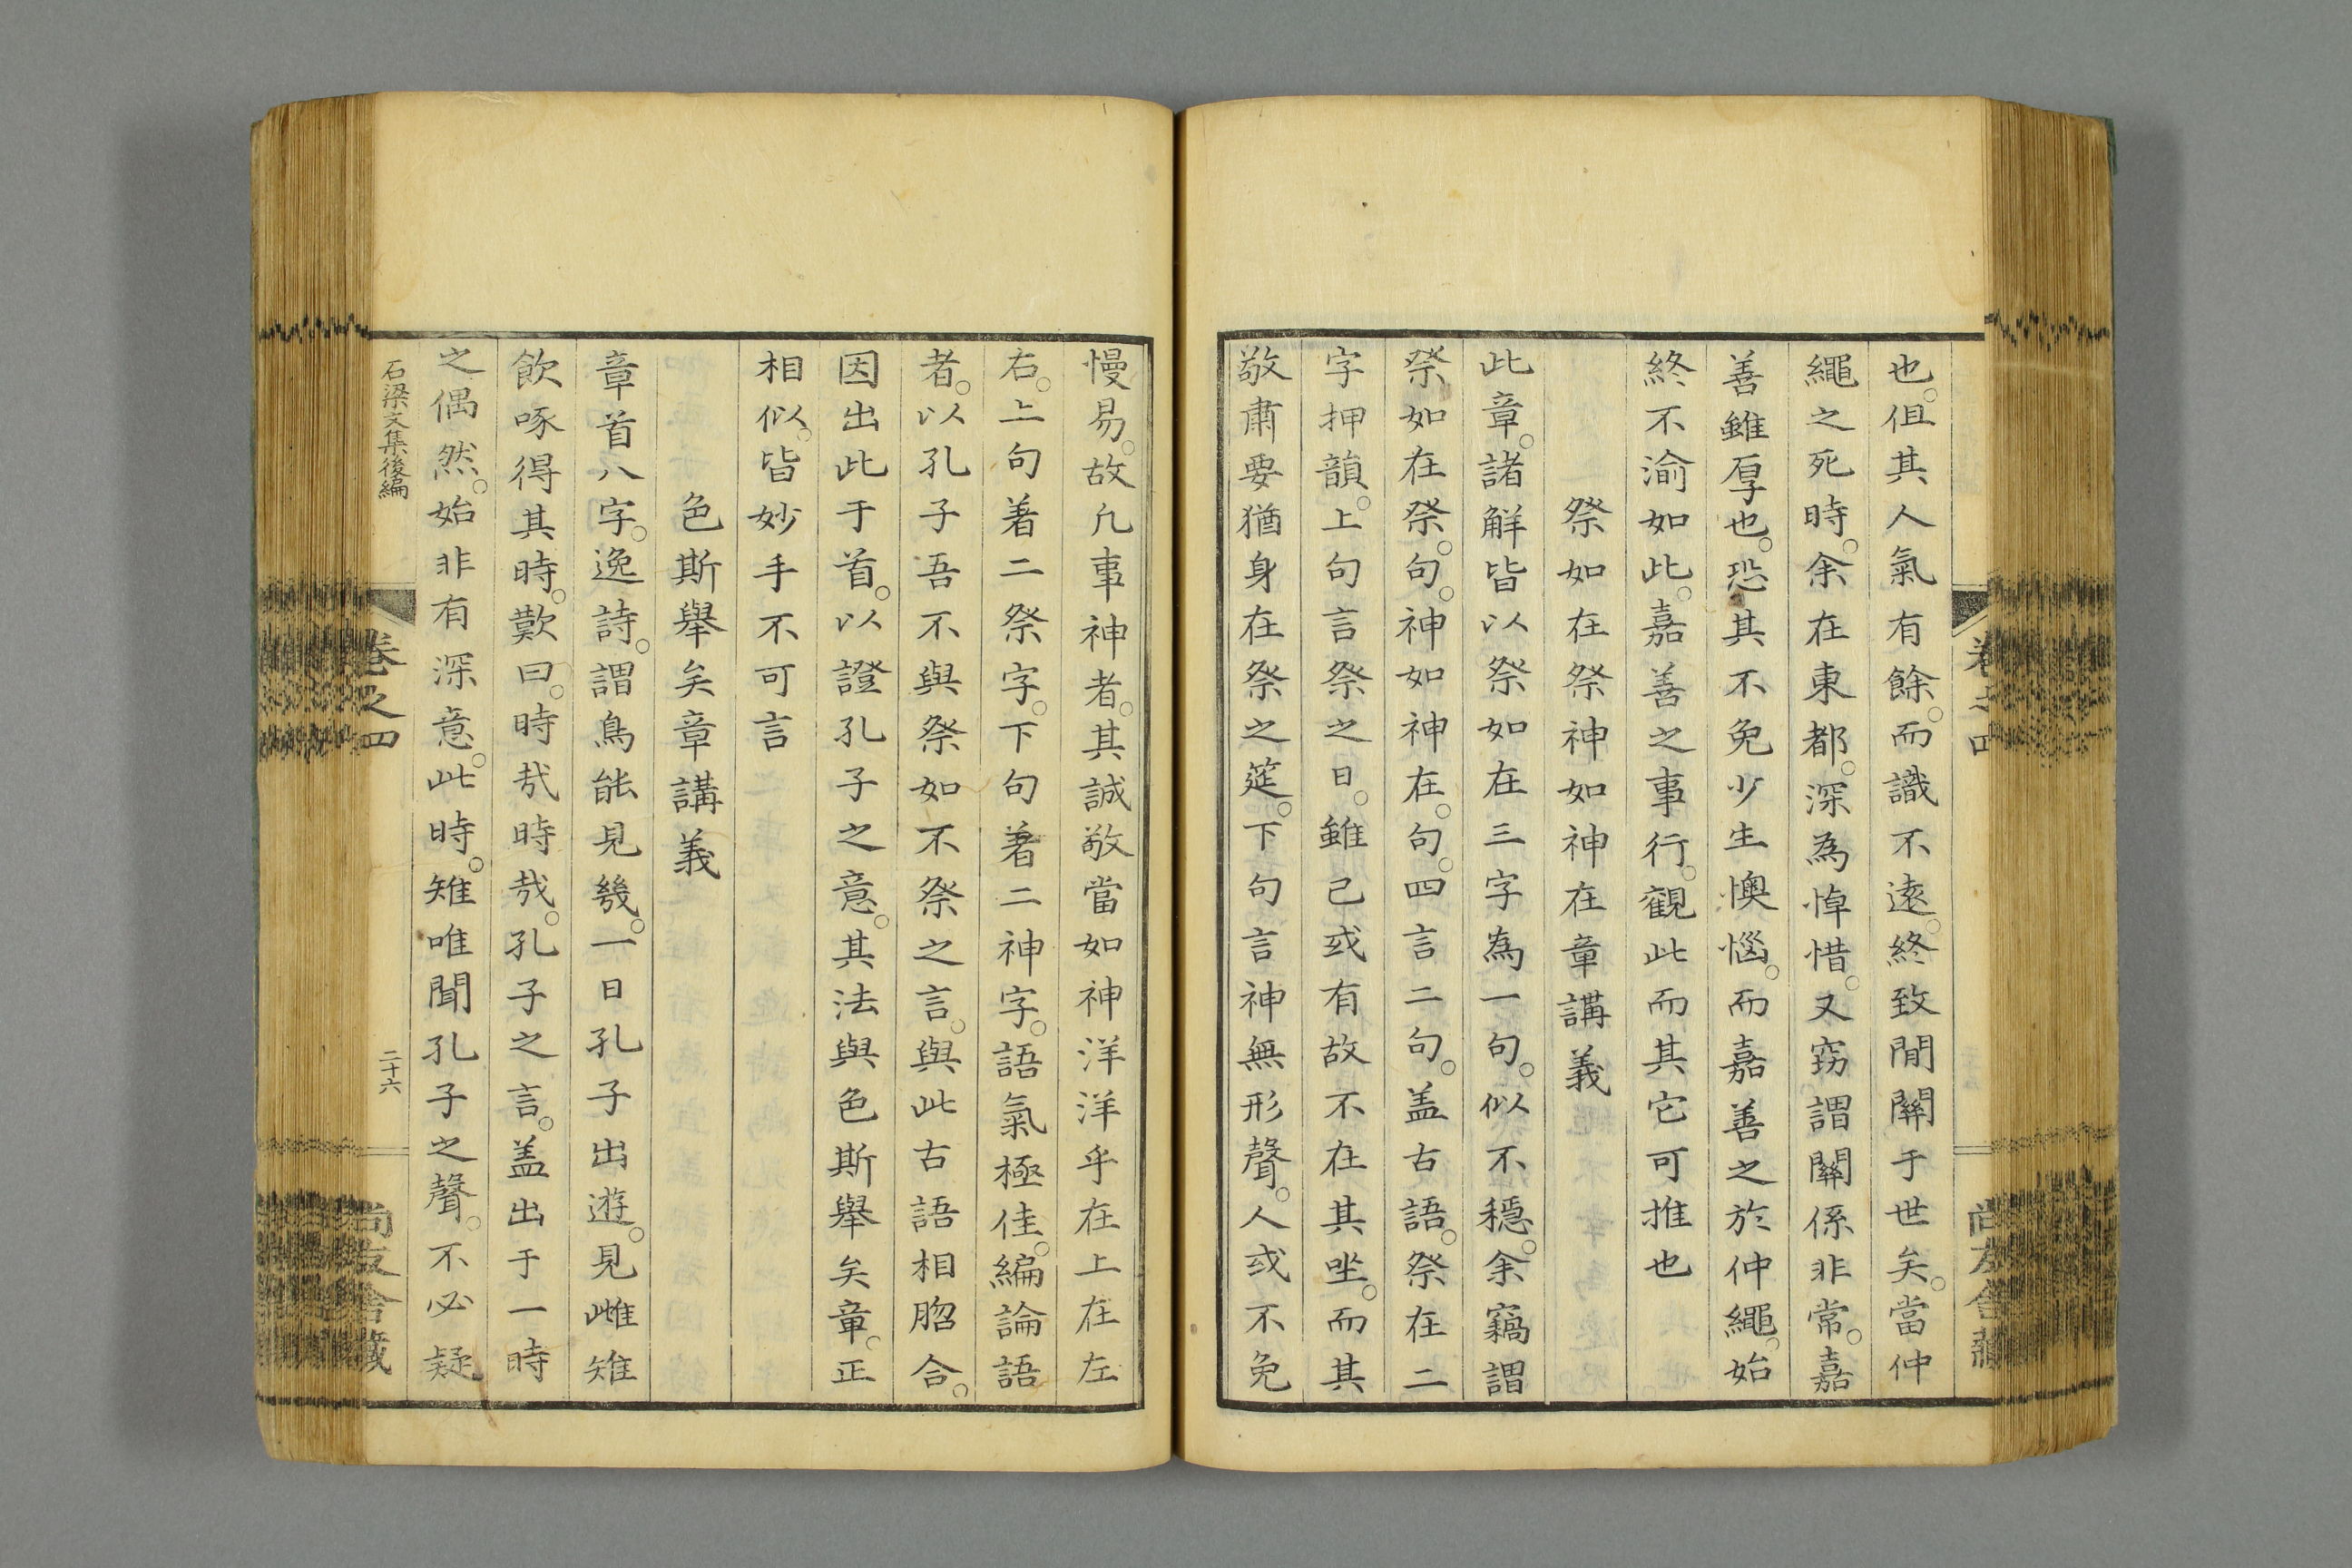 也。伹其人氣有餘。而識不遠。終致閒關于世矣。當仲
繩之死時。余在東都。深為悼惜。又窃謂關係非常。嘉
善雖厚也。恐其不免少生懊惱。而嘉善之於仲繩。始
終不渝如此。嘉善之事行。觀此而其它可推也
祭如在祭神如神在章講義
此章。諸解皆以祭如在三字為一句。似不穩。余竊謂
祭如在祭。句。神如神在。句。四言二句。盖古語。祭在二
字押韻。上句言祭之日。雖已或有故不在其坐。而其
敬肅要猶身在祭之筵。下句言神無形聲。人或不免
慢易。故凡事神者。其誠敬當如神洋洋乎在上在左
右。上句着二祭字。下句着二神字。語氣極佳。編論語
者。以孔子吾不與祭如不祭之言。與此古語相脗合。
因出此于首。以證孔子之意。其法與色斯舉矣章。正
相似。皆妙手不可言
色斯舉矣章講義
章首八字。逸詩。謂鳥能見幾。一日孔子出遊。見雌雉
飲啄得其時。歎曰。時哉時哉。孔子之言。盖出于一時
之偶然。始非有深意。此時。雉唯聞孔子之聲。不必疑
石梁文集後編
卷之四
二十六
尚友舍藏
卷之四
尚友舍藏